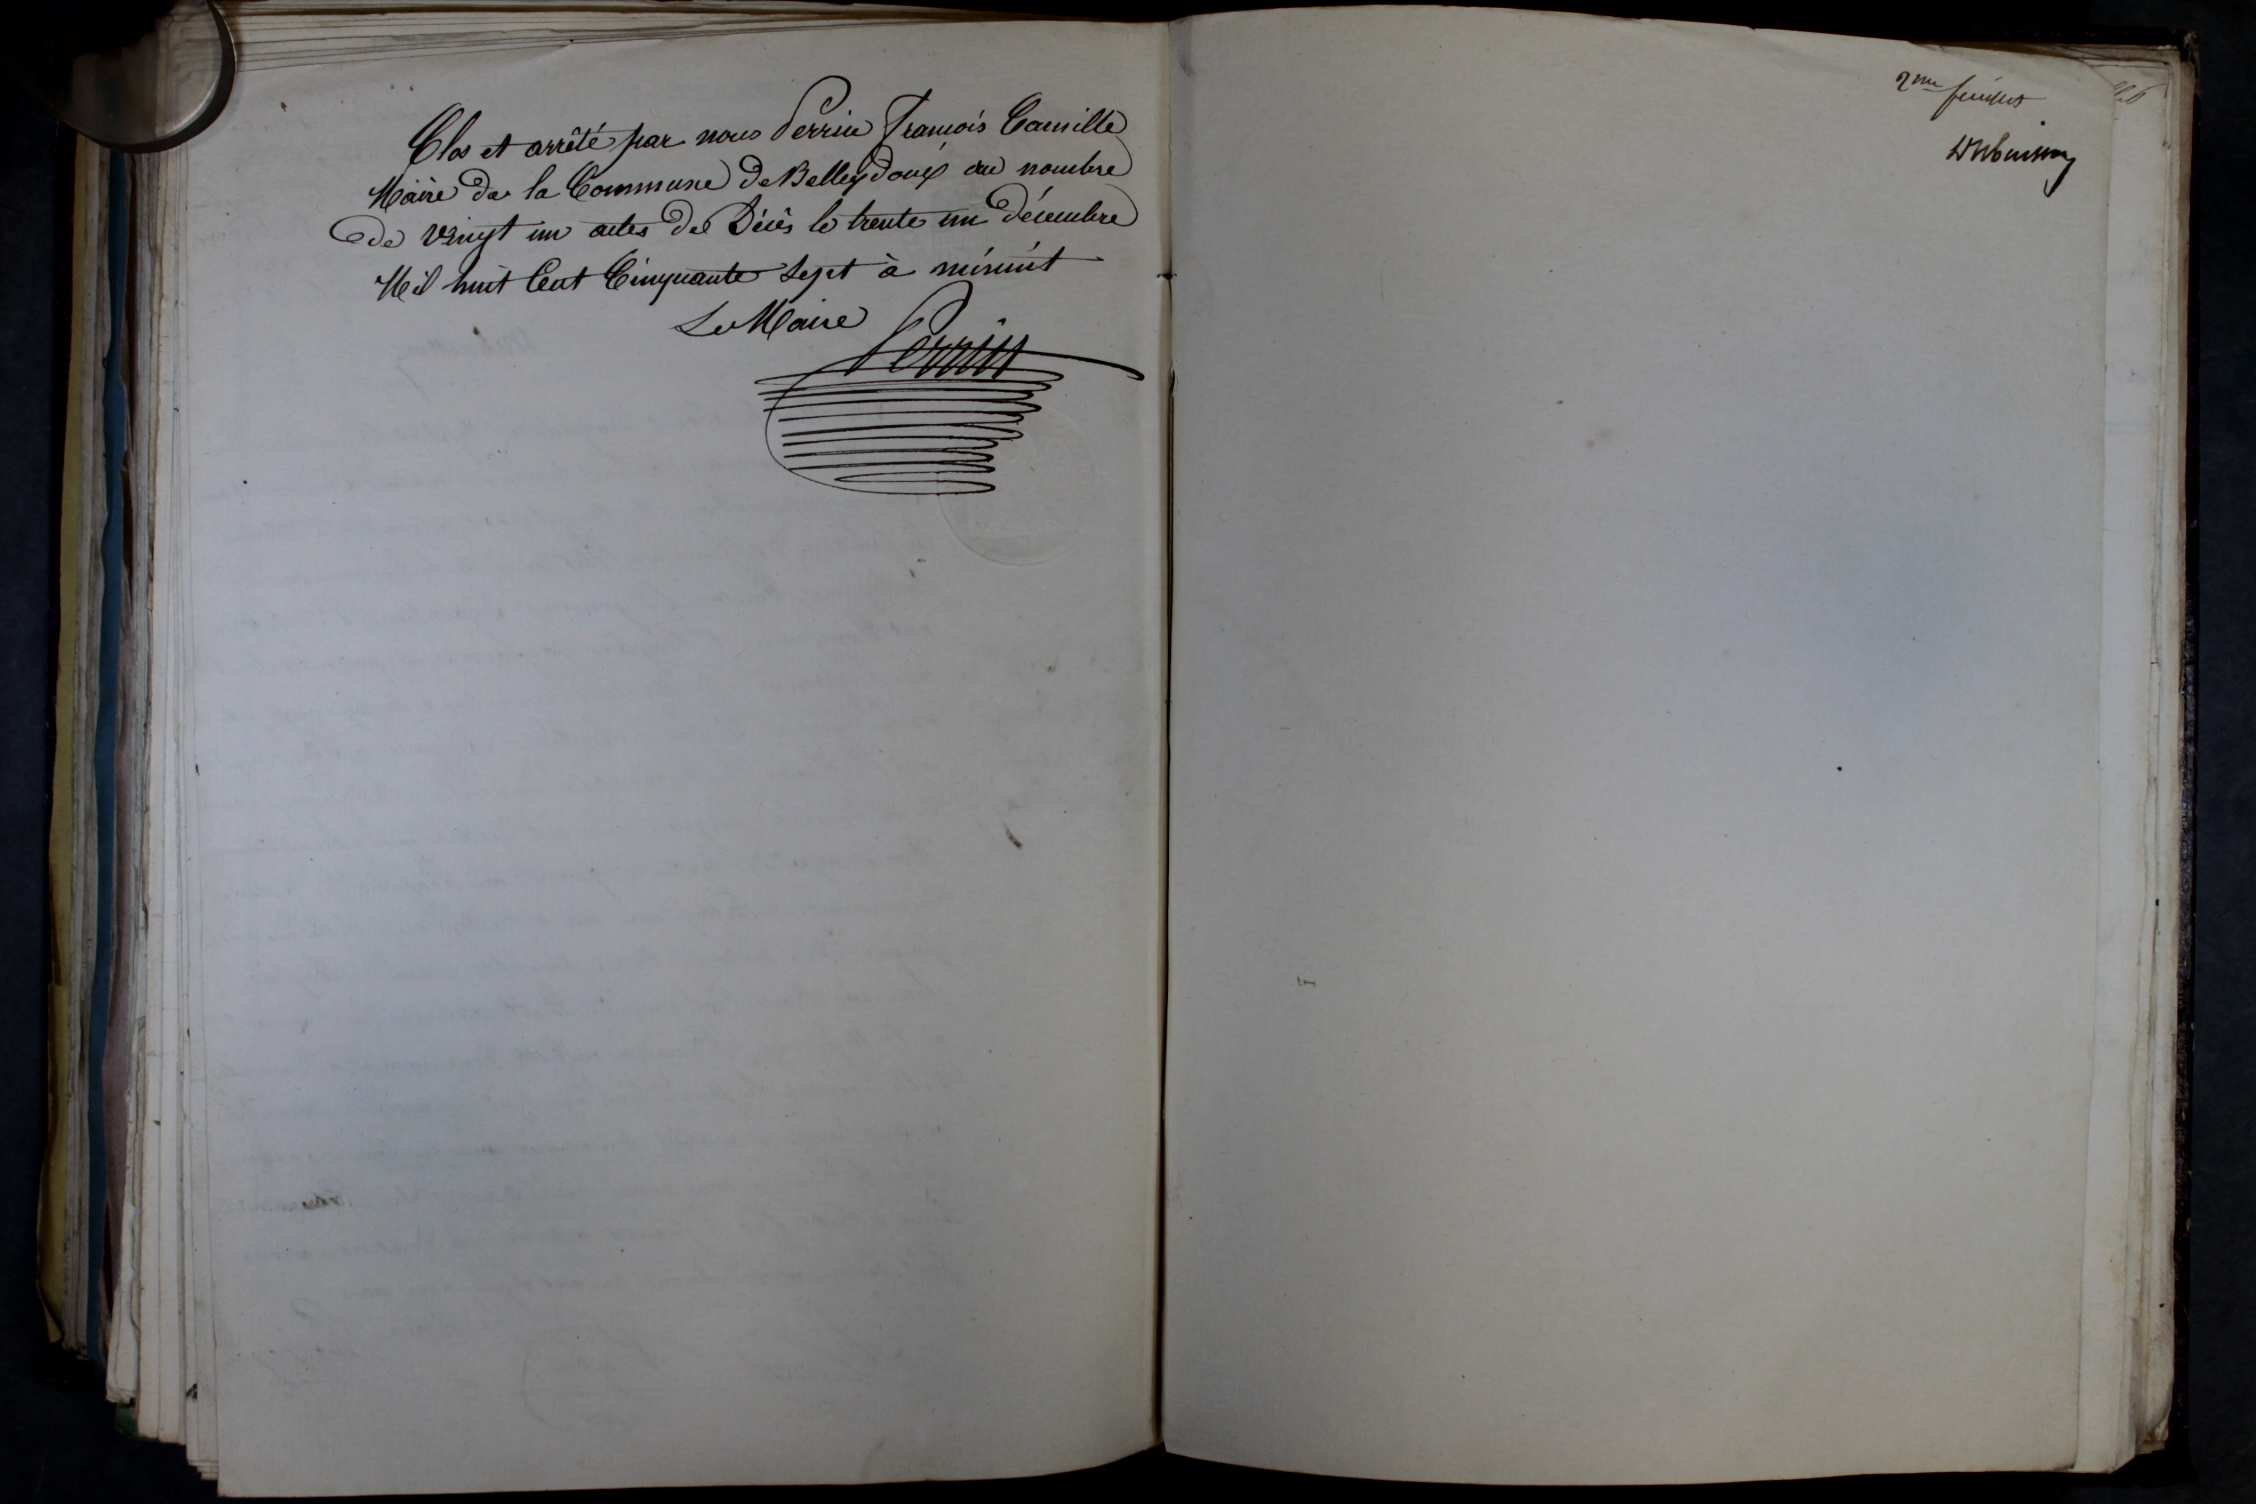 Clos et arrêté par nous Perrin François Camille
Maire de la Commune de Belleydoux au nombre
de vingt un actes de Décès le trente un décembre
Mil huit Cent Cinquante Sept à minuit
Le Maire
Perrin
2me feuillet